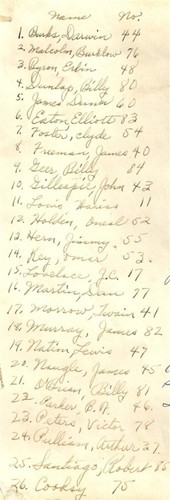 Name No.
1. Burks, Darwin 44
2. Malcolm, Burklow 76
3. Byron, Erbin 48
4. Dunlap, Billy 80
5. James Dunn 60
6. Eaton Elliott 83
7. Foster, Clyde 54
8. Freeman, James 40
9. Geer, Billy 84
10. Gillespie, John 43
11. Louis 11
12. Holden, Oneal 52
13. Hern, Jimmy. 55
14. Key, Omar 53.
15. Lovelace, J.C. 17
16. Martin, Dan 77
17. Morrow, Twain 41
18. Murray, James 82
19. Nation Lewis 47
20. Naugle, James 45
21. O'Brian, Billy 81
22. Parker, B.A. 46.
23. Peters, Victor 78
24. Pulliam, Arthur 37.
25. Santiago, Robert 85
26. Cooksy 75